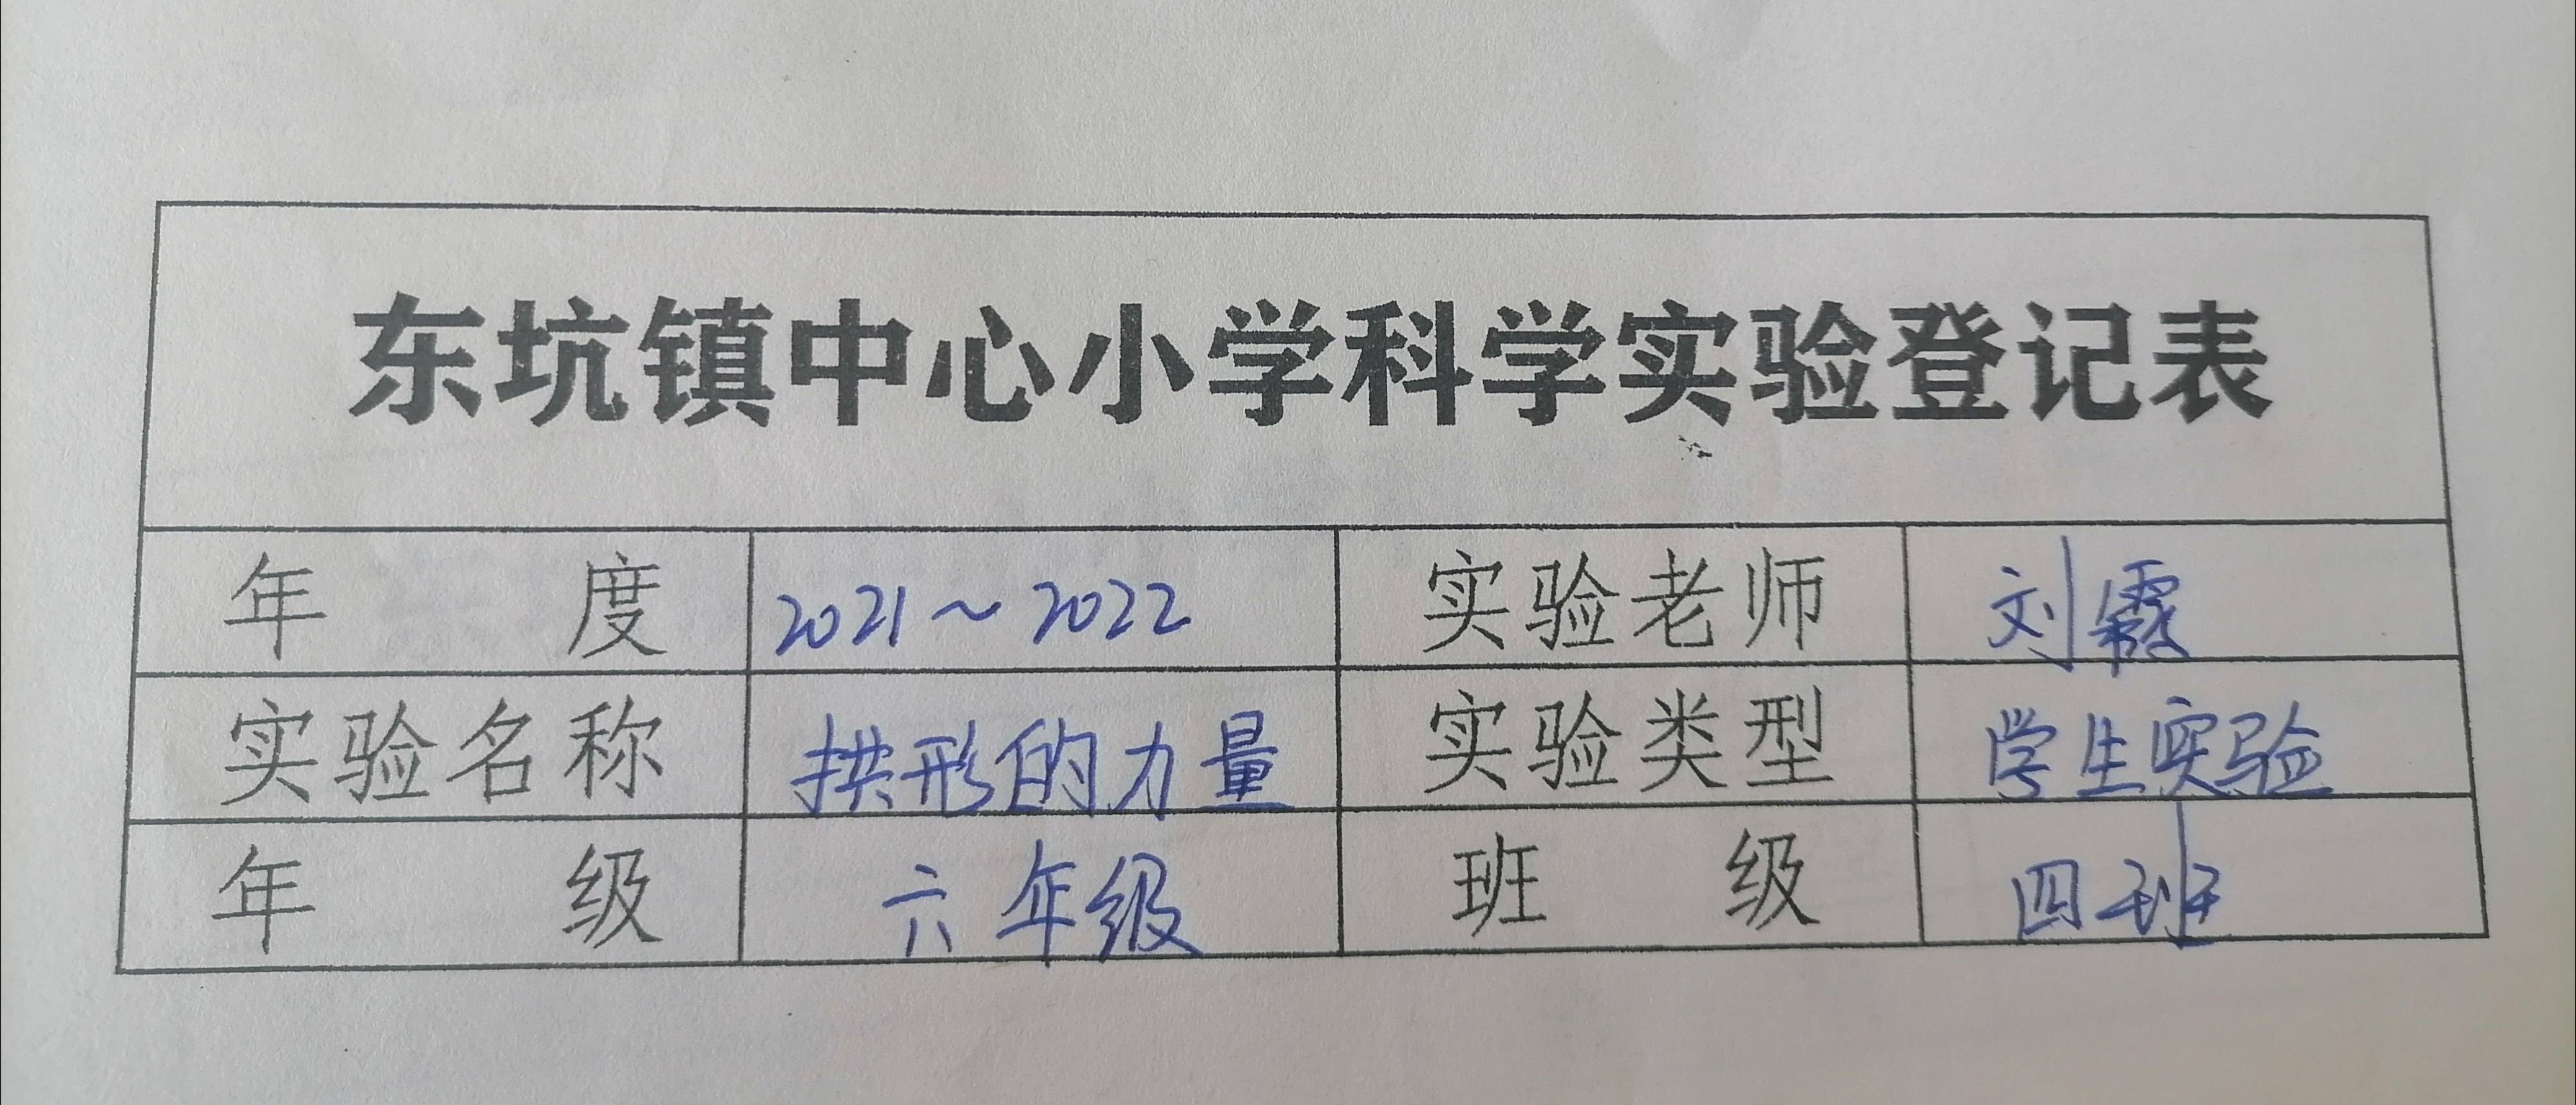 东坑镇中心小学科学实验登记表
年 度 2021~2022 实验老师 刘霞
实验名称 拱形的力量 实验类型 学生实验
年 级 六年级 班 级 四班